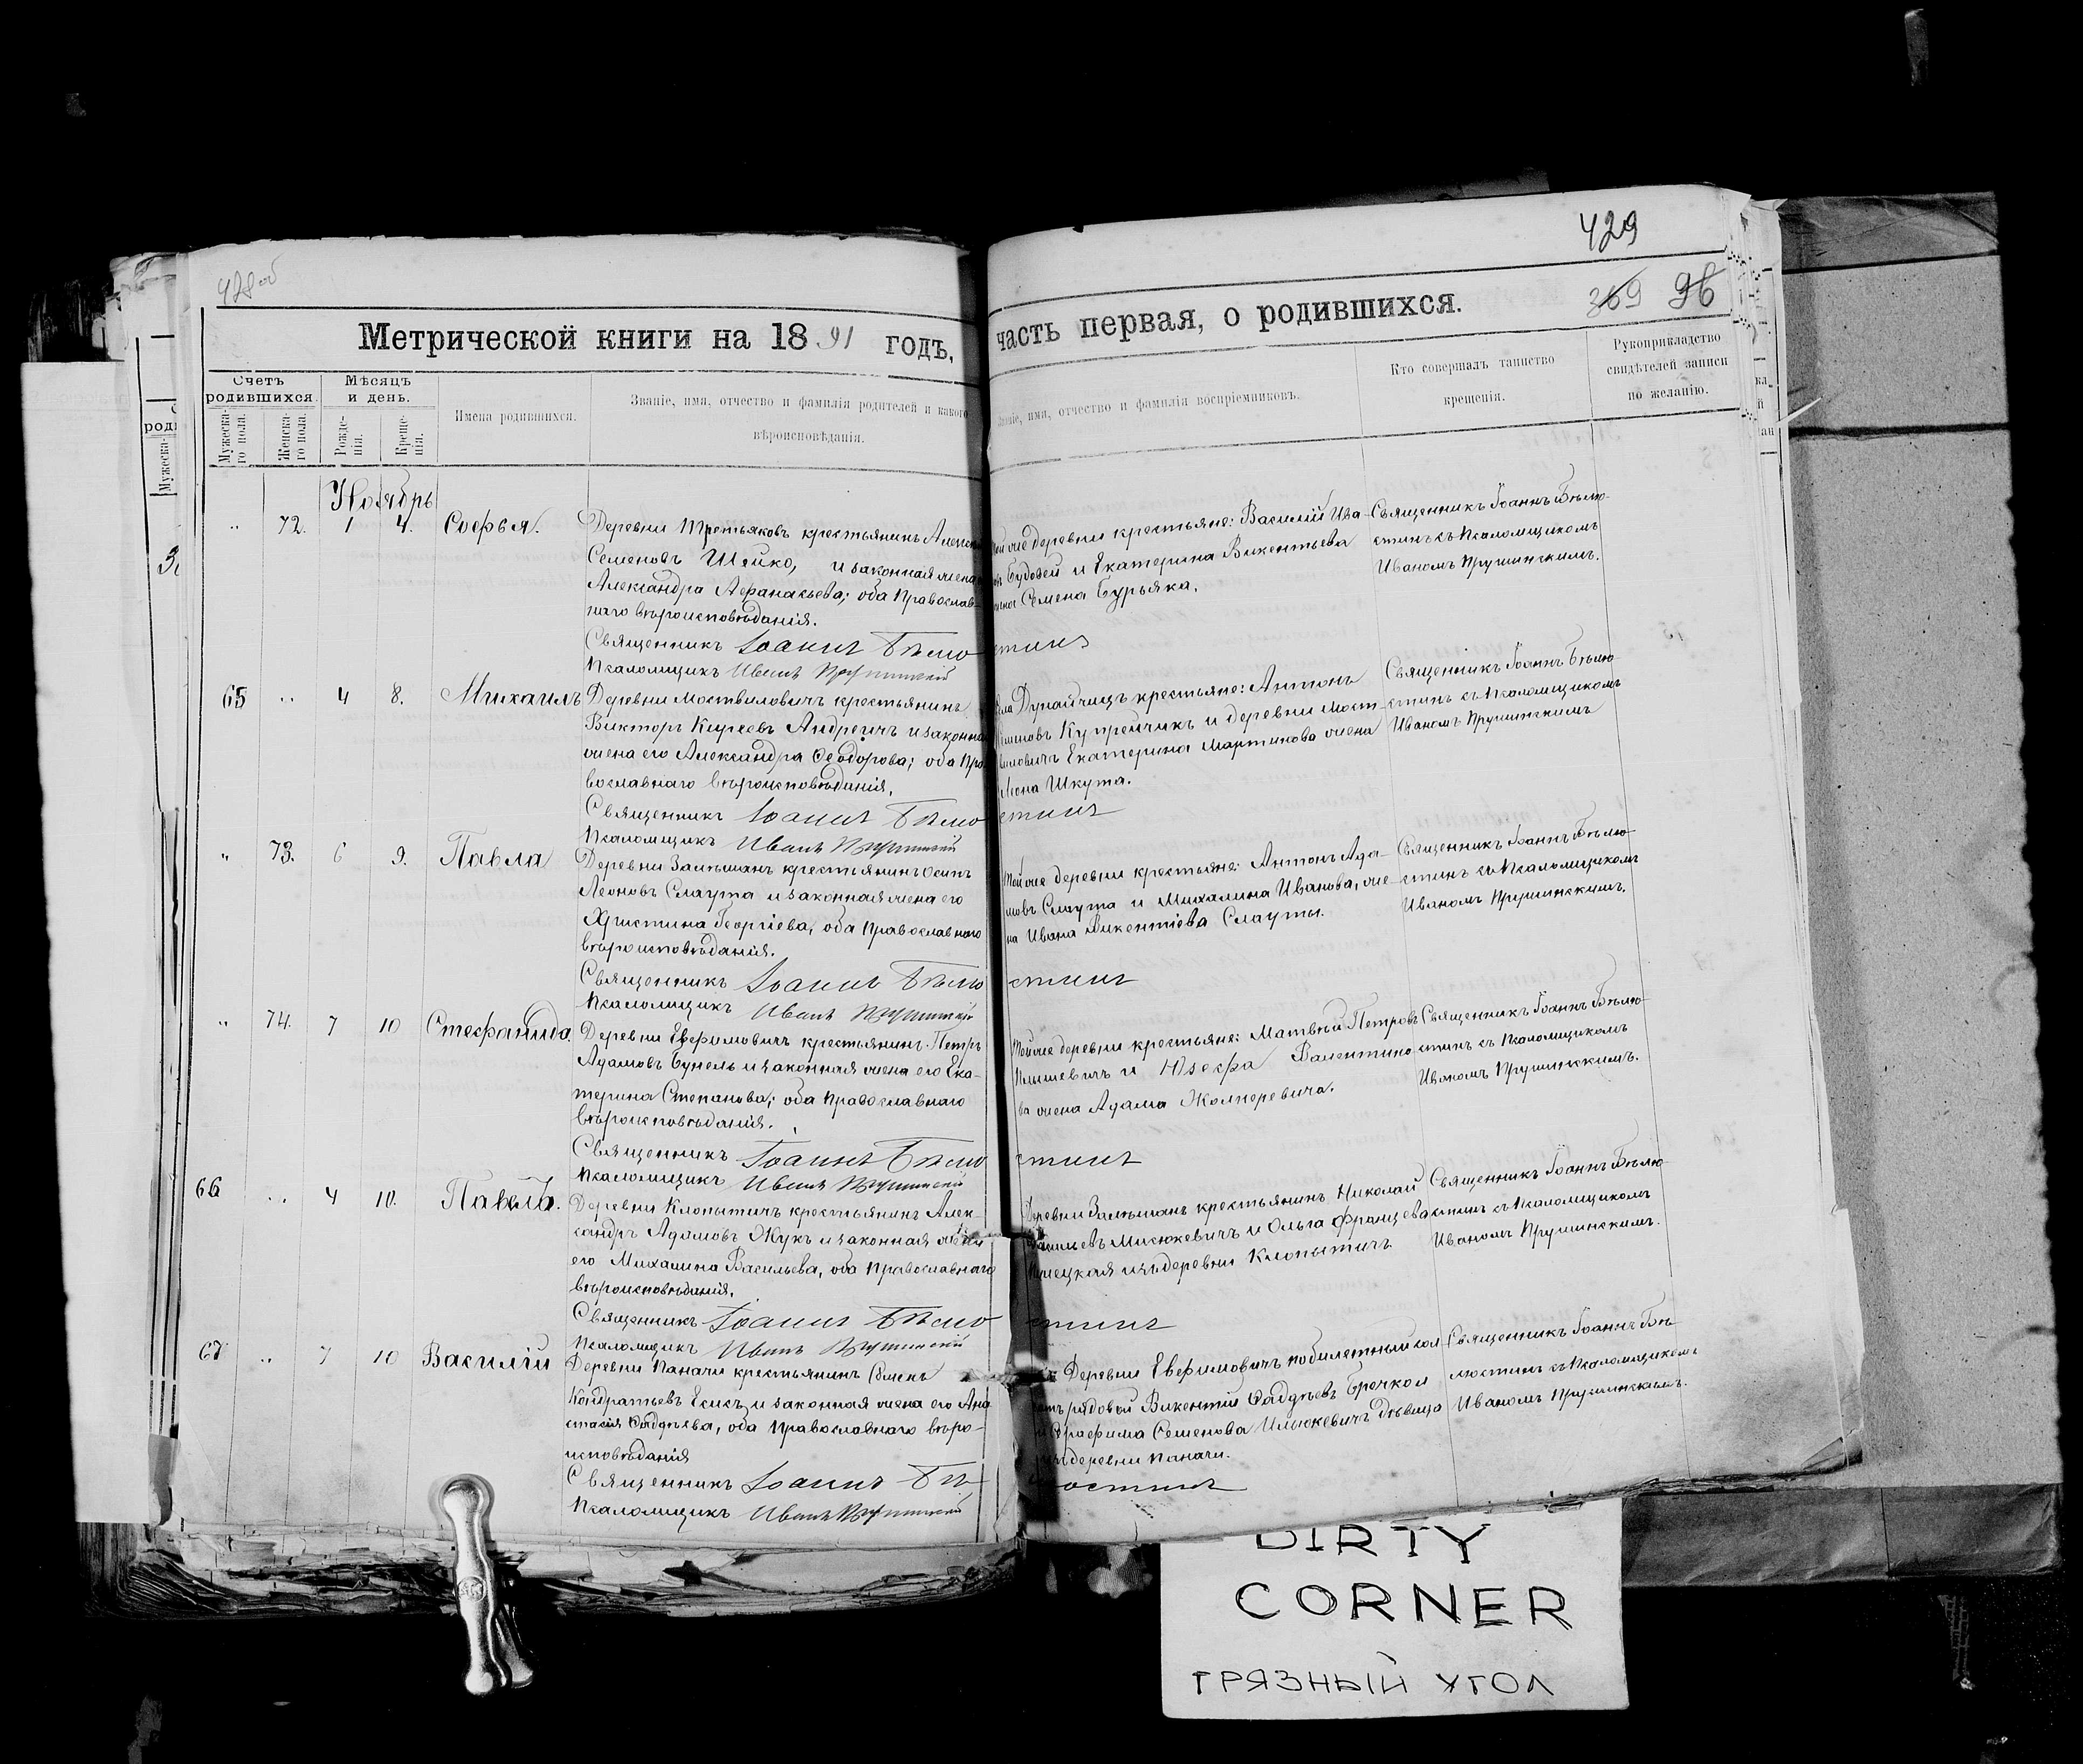 428об
429
369 96
Метрической книги на 1891 годъ,
часть первая, о родившихся.
Счетъ родившихся.
Мѣсяцъ и день.
Мужеска-го пола.
Женска-го пола.
Рожде-нія.
Креще-нія.
Имена родившихся.
Званіе, имя, отчество и фамилія родителей и какого
вѣроисповѣданія.
Званіе, имя, отчество и фамилія воспріемниковъ.
Кто совершалъ таинство
крещенія.
Рукоприкладство
свидѣтелей записи
по желанію.
Ноябрь
" 72. 1 4. Софья.
Деревни Третьяковъ крестьянинъ
Семеновъ Шейко, и законная жена
Александра Афанасьева; оба Православ-
наго вѣроисповѣданія.
Священникъ Іоаннъ Бѣлю
стинъ
Псаломщикъ Иванъ Прушинскій
той же деревни крестьяне: Василій Ива-
Будовей и Екатерина Викентьева
жена Семена Бурьяка.
Священникъ Іоаннъ Бѣлю-
стинъ съ Псаломщикомъ
Иваномъ Прушинскимъ.
65 " 4 8. Михаилъ
Деревни Моствиловичъ крестьянинъ
Викторъ Андреичъ и законная
жена его Александра Ѳеодорова; оба Пра-
вославнаго вѣроисповѣданія.
Священникъ Іоаннъ Бѣлю
стинъ
Псаломщикъ Иванъ Прушинскій
Дунайчицъ крестьяне: Антонъ
Купрейчикъ и деревни Мост-
виловичъ Екатерина Мартинова жена
Шкута.
Священникъ Іоаннъ Бѣлю-
стинъ съ Псаломщикомъ
Иваномъ Прушинскимъ
" 73. 6 9. Павла
Деревни Залѣшанъ крестьянинъ Осипъ
Леоновъ Слаута и законная жена его
Христина Георгіева, оба Православнаго
вѣроисповѣданія.
Священникъ Іоаннъ Бѣлю
стинъ
Псаломщикъ Иванъ Прушинскій
той же деревни крестьяне: Антонъ Ада-
мовъ Слаута и Михалина Иванова, же-
на Ивана Викентіева Слауты.
Священникъ Іоаннъ Бѣлю-
стинъ съ Псаломщикомъ
Иваномъ Прушинскимъ.
" 74. 7 10 Стефанида.
Деревни Евфимовичъ крестьянинъ Петръ
Адамовъ Бунель и законная жена его Ека-
терина Степанова; оба Православнаго
вѣроисповѣданія.
Священникъ Іоаннъ Бѣлю
стинъ
Псаломщикъ Иванъ Прушинскій
той же деревни крестьяне: Матвѣй Петровъ
и Юзефа Валентино
ва жена Адама Жолнеревича.
Священникъ Іоаннъ Бѣлю-
стинъ съ Псаломщикомъ
Иваномъ Прушинскимъ.
66 " 4 10. Павелъ.
Деревни Клопытичъ крестьянинъ Алек-
сандръ Адамовъ Жукъ и законная жена
его Михалина Васильева, оба Православнаго
вѣроисповѣданія.
Священникъ Іоаннъ Бѣлю
стинъ
Псаломщикъ Иванъ Прушинскій
Деревни Залѣшанъ крестьянинъ Николай
Васильевъ Мисюкевичъ и Ольга Францева
изъ деревни Клопытичъ
Священникъ Іоаннъ Бѣлю-
стинъ съ Псаломщикомъ
Иваномъ Прушинскимъ.
67 " 7 10 Василій
Деревни Паначи крестьянинъ
Кондратьевъ и законная жена его Ана
стасія Ѳаддѣева, оба Православнаго вѣро-
исповѣданія
Священникъ Іоаннъ Бѣ-
люстинъ
Псаломщикъ Иванъ Прушинскій
Деревни Евфимовичъ побилетный сол
рядовой Викентій Ѳаддѣевъ
Семенова Илькевичъ дѣвица
изъ деревни Паначи.
Священникъ Іоаннъ Бѣ-
люстинъ съ Псаломщикомъ
Иваномъ Прушинскимъ.
DIRTY
CORNER
ГРЯЗНЫЙ УГОЛ